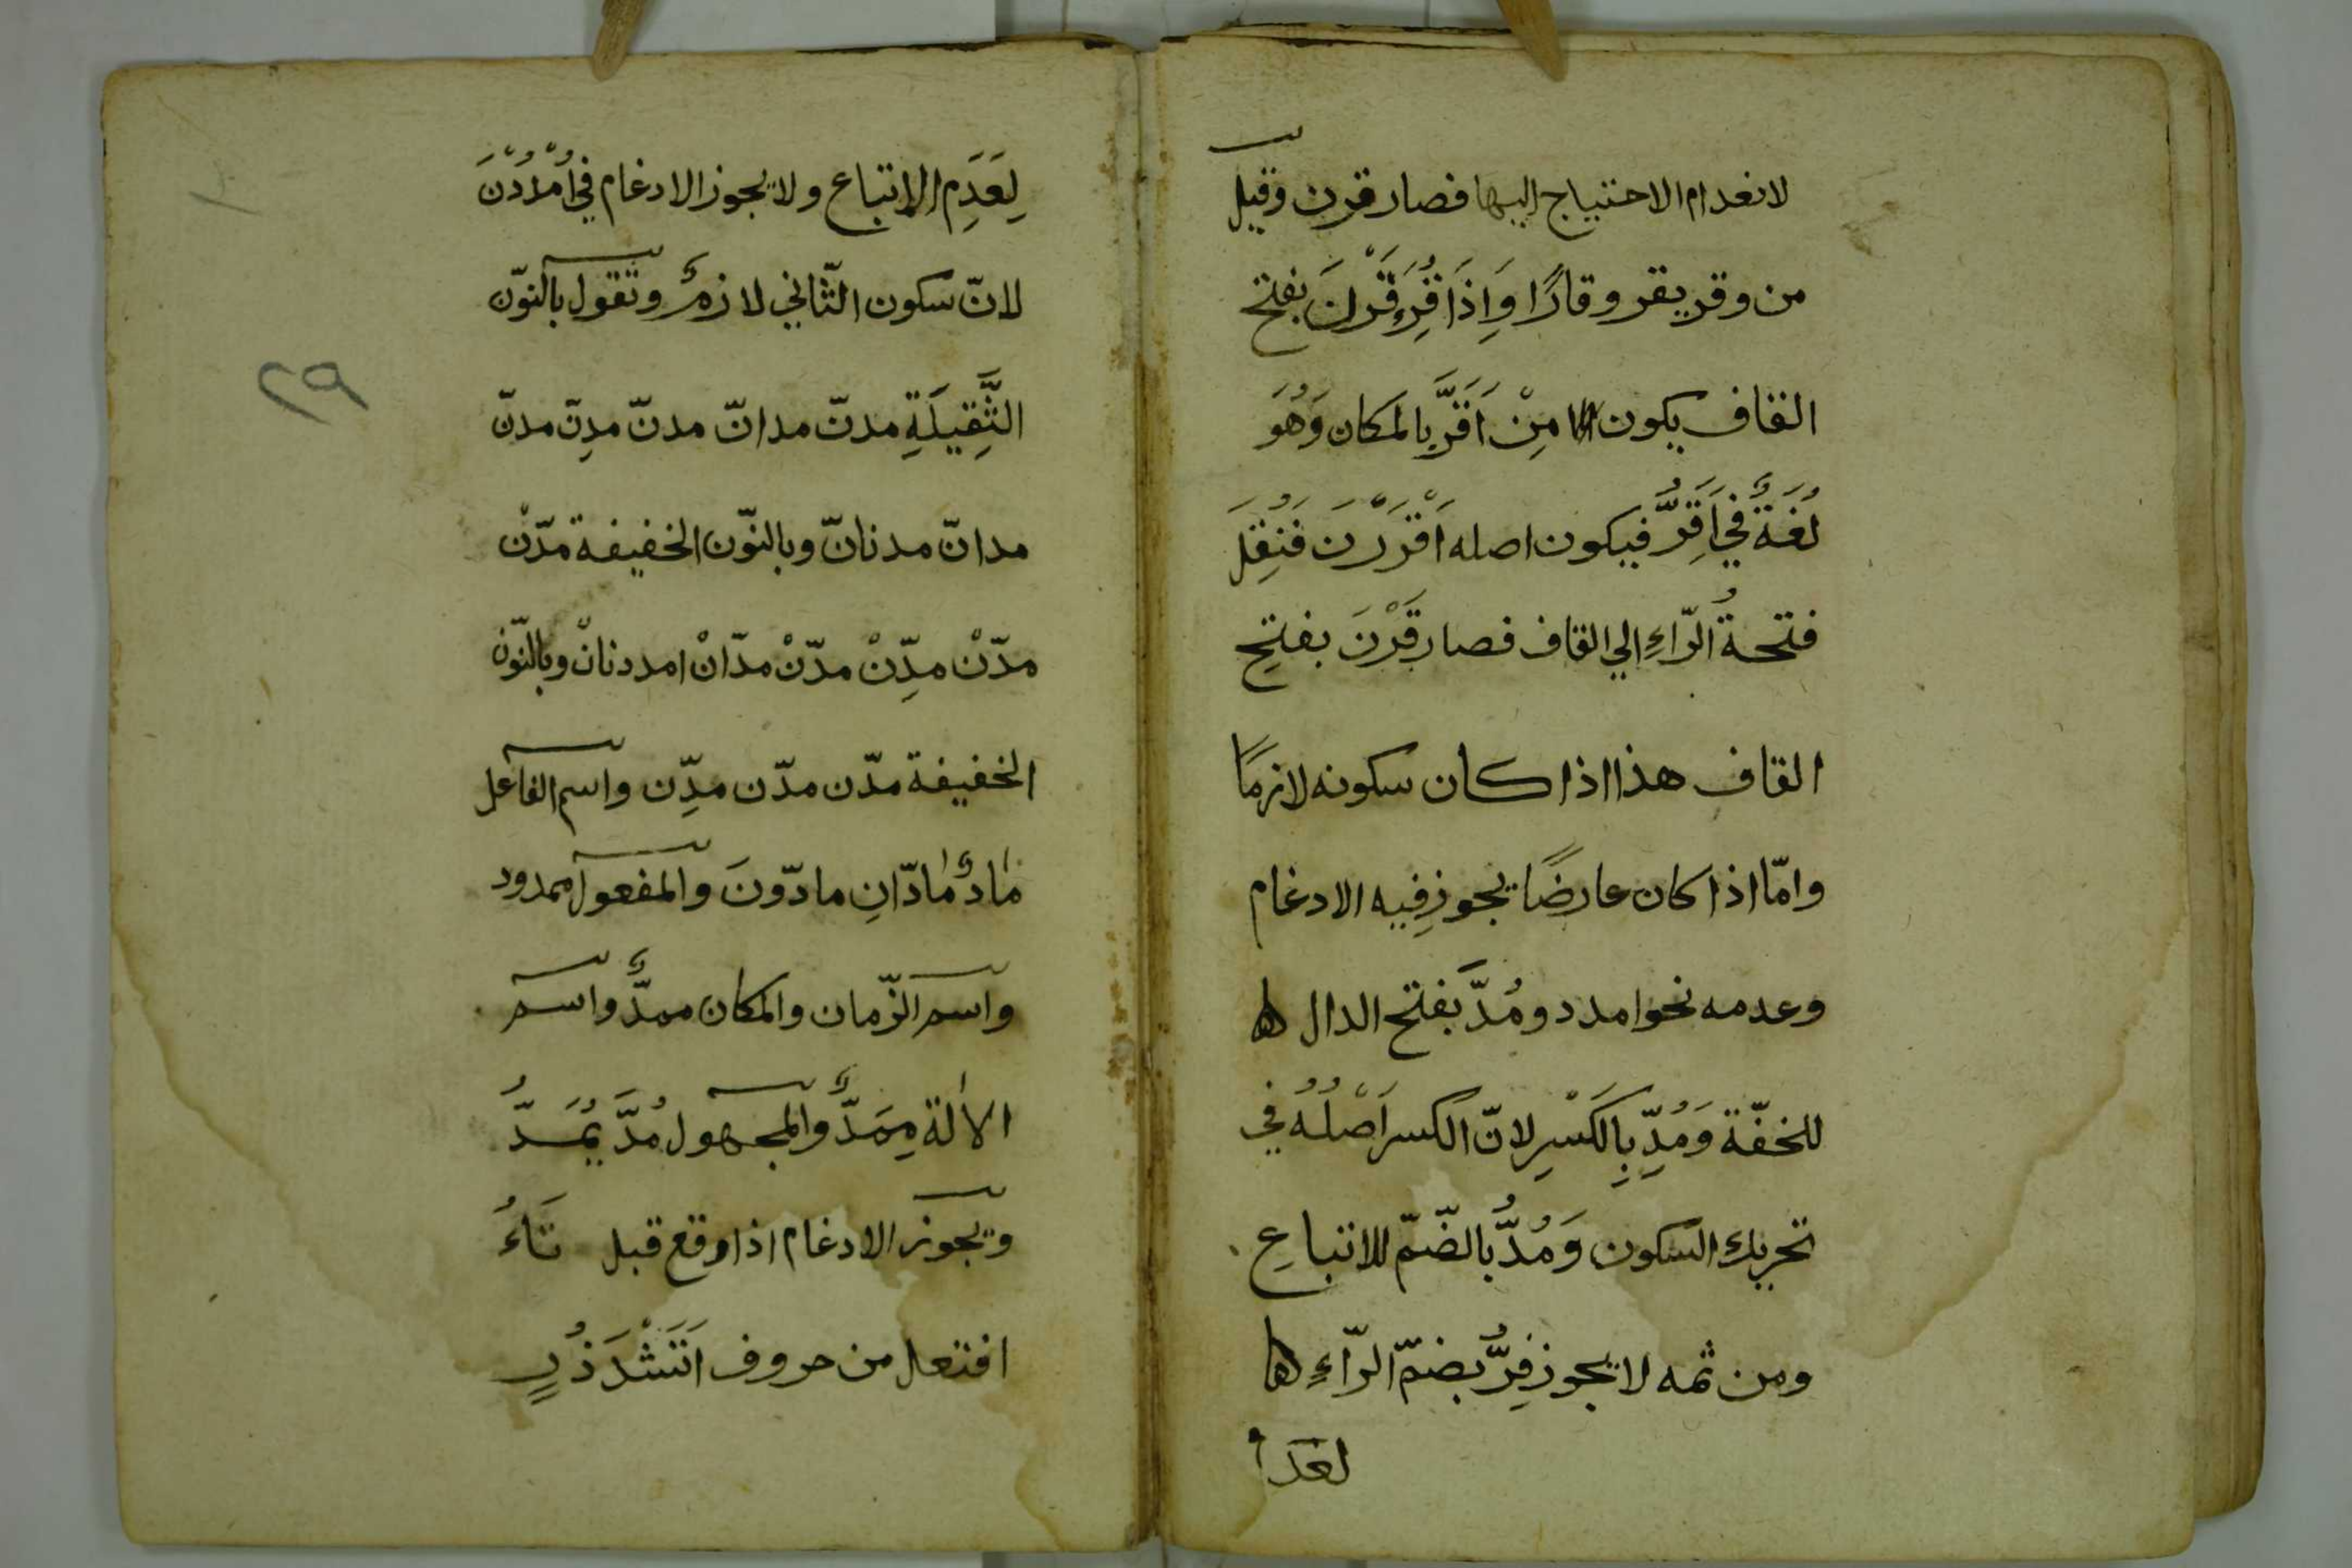 لانعدام الاحتياج اليها فصار قرن وقيل
من وقر يقر وقارًا وَاِذَا قُرِءَ قَرْنَ بفتح
القاف يكون مِنْ اَقَرَّ بالمكان وَهُوَ
لُغَةٌ في اَقِرُّ فيكون اصله اَقْرَرْنَ فَنُقِلَ
فتحةُ الرّاءِ الي القاف فصار قَرْنَ بفتحِ
القاف هذا اذا كان سكونه لازمًا
وامّا اذا كان عارضًا يجوز فِيه الادغام
وعدمه نحو امدد ومُدَّ بفتح الدال
للخفّة وَمُدِّ بِالكَسْرِ لانّ الكسر اَصْلُهُ في
تحريك السكون وَمُدُّ بالضّمّ للاتباعِ
ومن ثمه لا يجوز فِرُّ بضمّ الرّاءِ
لعدم
لِعَدَمِ الاِتباع ولا يجوز الادغام في اُمْدُدْنَ
لانّ سكون الثّاني لازمٌ وتقول بالنّون
الثَّقِيلَةِ مدنّ مدانّ مدنّ مدِنّ مدنّ
مدانّ مدنانّ وبالنّون الخفيفة مدّنْ
مدّنْ مدِّنْ مدّنْ مدّانْ امددنانْ وبالنّون
الخفيفة مدّن مدّن مدِّن واسم الفاعل
مَادٌّ مَادّانِ مادّونَ والمفعول ممدود
واسم الزّمان والمكان ممدٌّ واسم
الاٰلة مِمَدٌّ والمجهول مُدَّ يُمَدُّ
ويجوز الادغام اذا وقع قبل تَاءُ
افتعل من حروف اَتَثْدَذُرٍ
٢٩